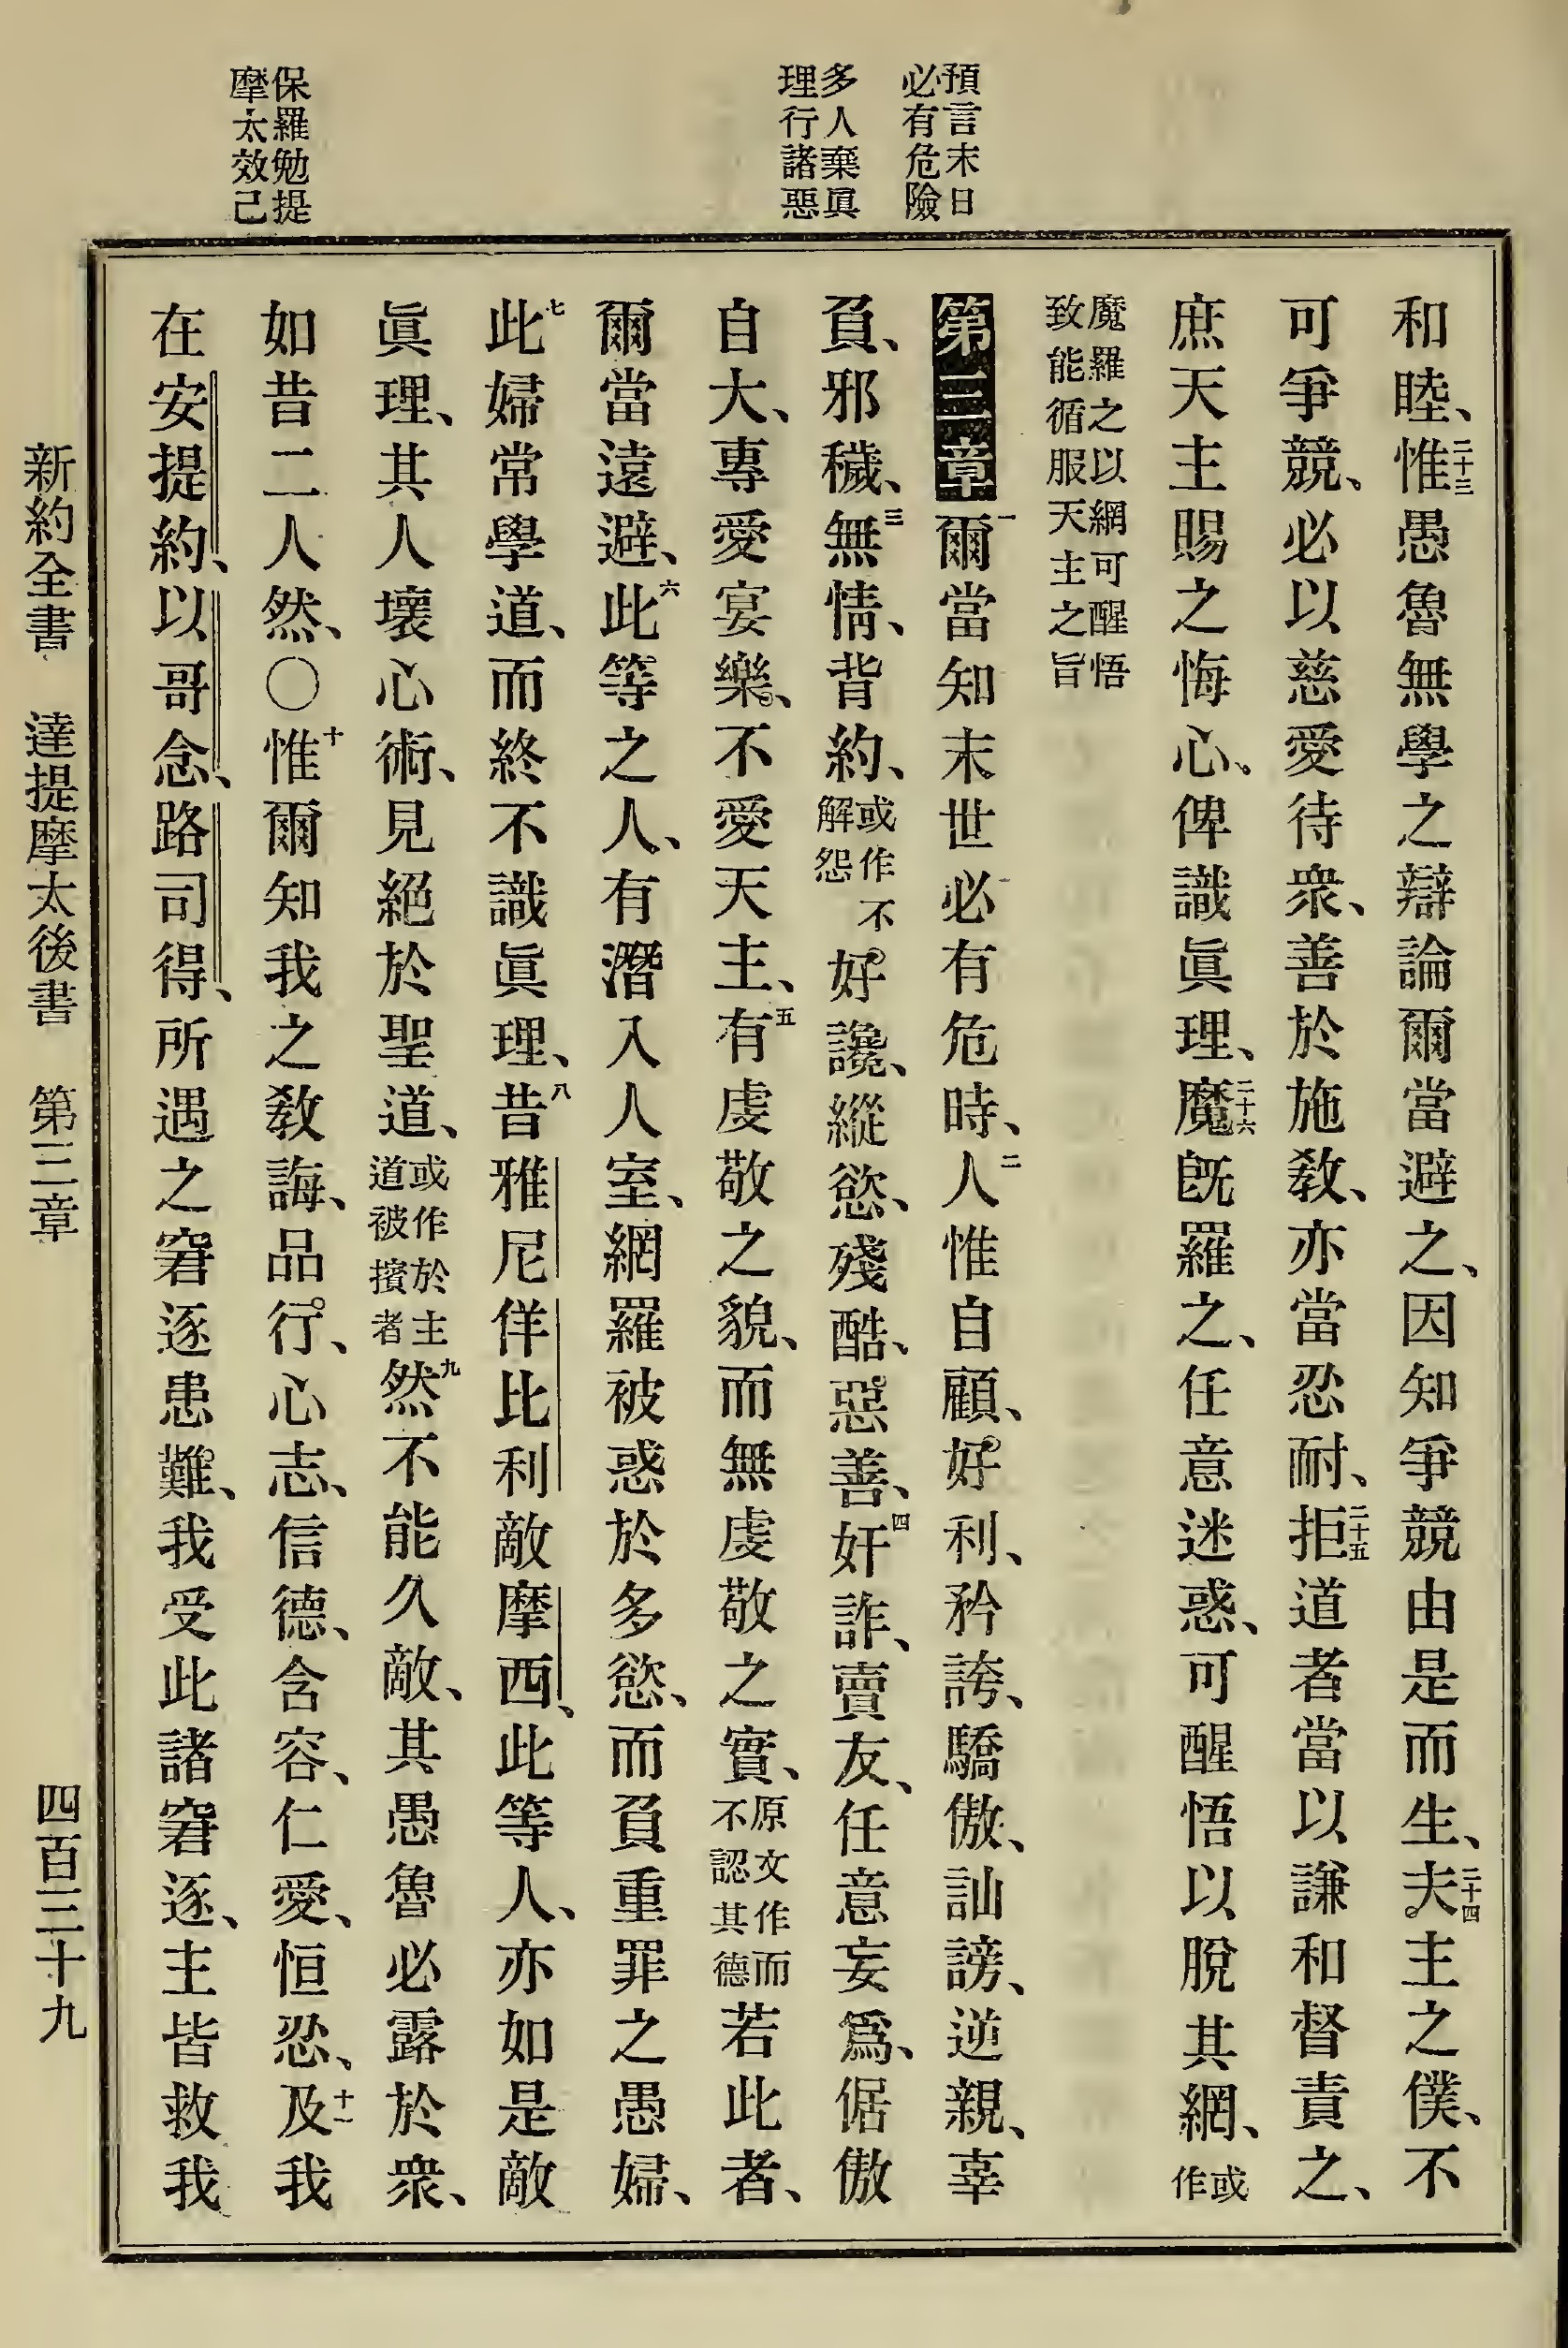 預言末日
必有危險
多人棄眞
理行諸惡
保羅勉提
摩太效己
和睦、二十三惟愚魯無學之辯論爾當避之、因知爭競由是而生、二十四夫主之僕、不
可爭競、必以慈愛待衆、善於施敎、亦當忍耐、二十五拒道者當以謙和督責之、
庶天主賜之悔心、俾識眞理、二十六魔旣羅之、任意迷惑、可醒悟以脫其網、或作
魔羅之以網可醒悟
致能循服天主之旨
第三章一爾當知末世必有危時、二人惟自顧、好利、矜誇、驕傲、訕謗、逆親、辜
負、邪穢、三無情、背約、或作不解怨好讒、縱慾、殘酷、惡善、四奸詐、賣友、任意妄爲、倨傲
自大、專愛宴樂、不愛天主、五有虔敬之貌、而無虔敬之實、原文作而不認其德若此者、
爾當遠避、六此等之人、有潛入人室、網羅被惑於多慾、而負重罪之愚婦、
七此婦常學道、而終不識眞理、八昔雅尼佯比利敵摩西、此等人、亦如是敵
眞理、其人壞心術、見絕於聖道、或作於主道被擯者九然不能久敵、其愚魯必露於衆、
如昔二人然、〇十惟爾知我之敎誨、品行、心志、信德、含容、仁愛、恒忍、十一及我
在安提約、以哥念、路司得、所遇之窘逐患難、我受此諸窘逐、主皆救我
新約全書 達提摩太後書 第三章 四百三十九